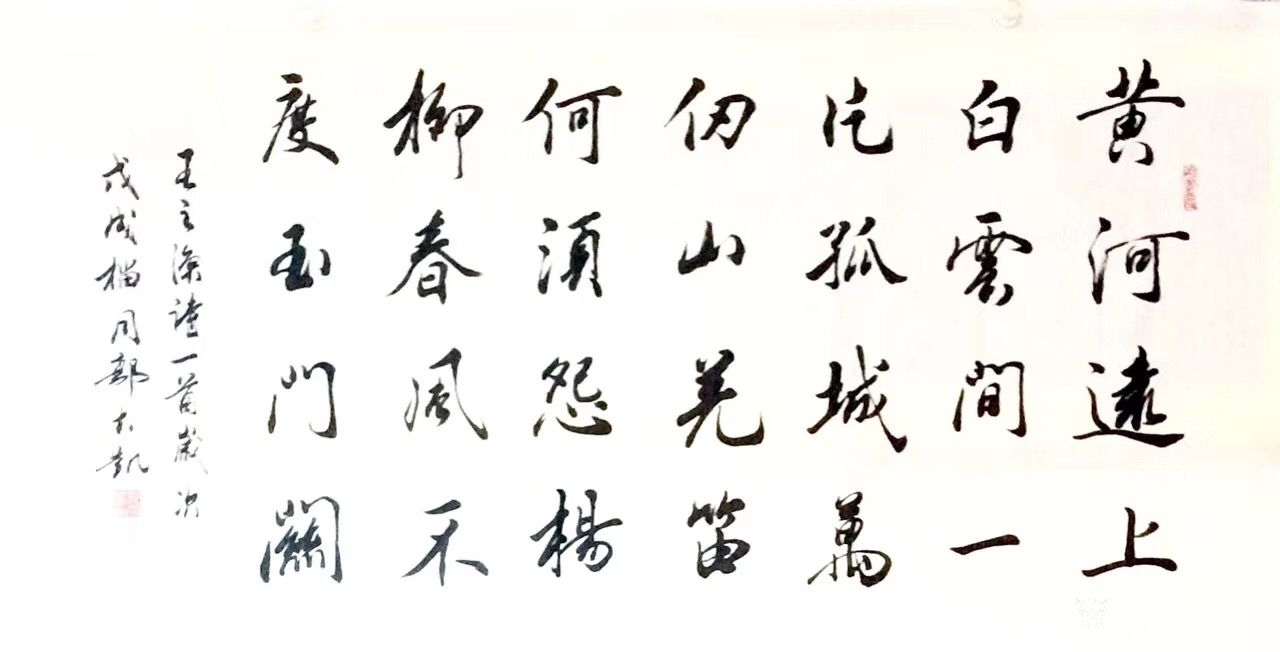 黄河遠上
白雲間一
片孤城萬
仞山羌笛
何須怨楊
柳春風不
度玉門關
王之渙詩一首歲次
戊戌 月 大凱